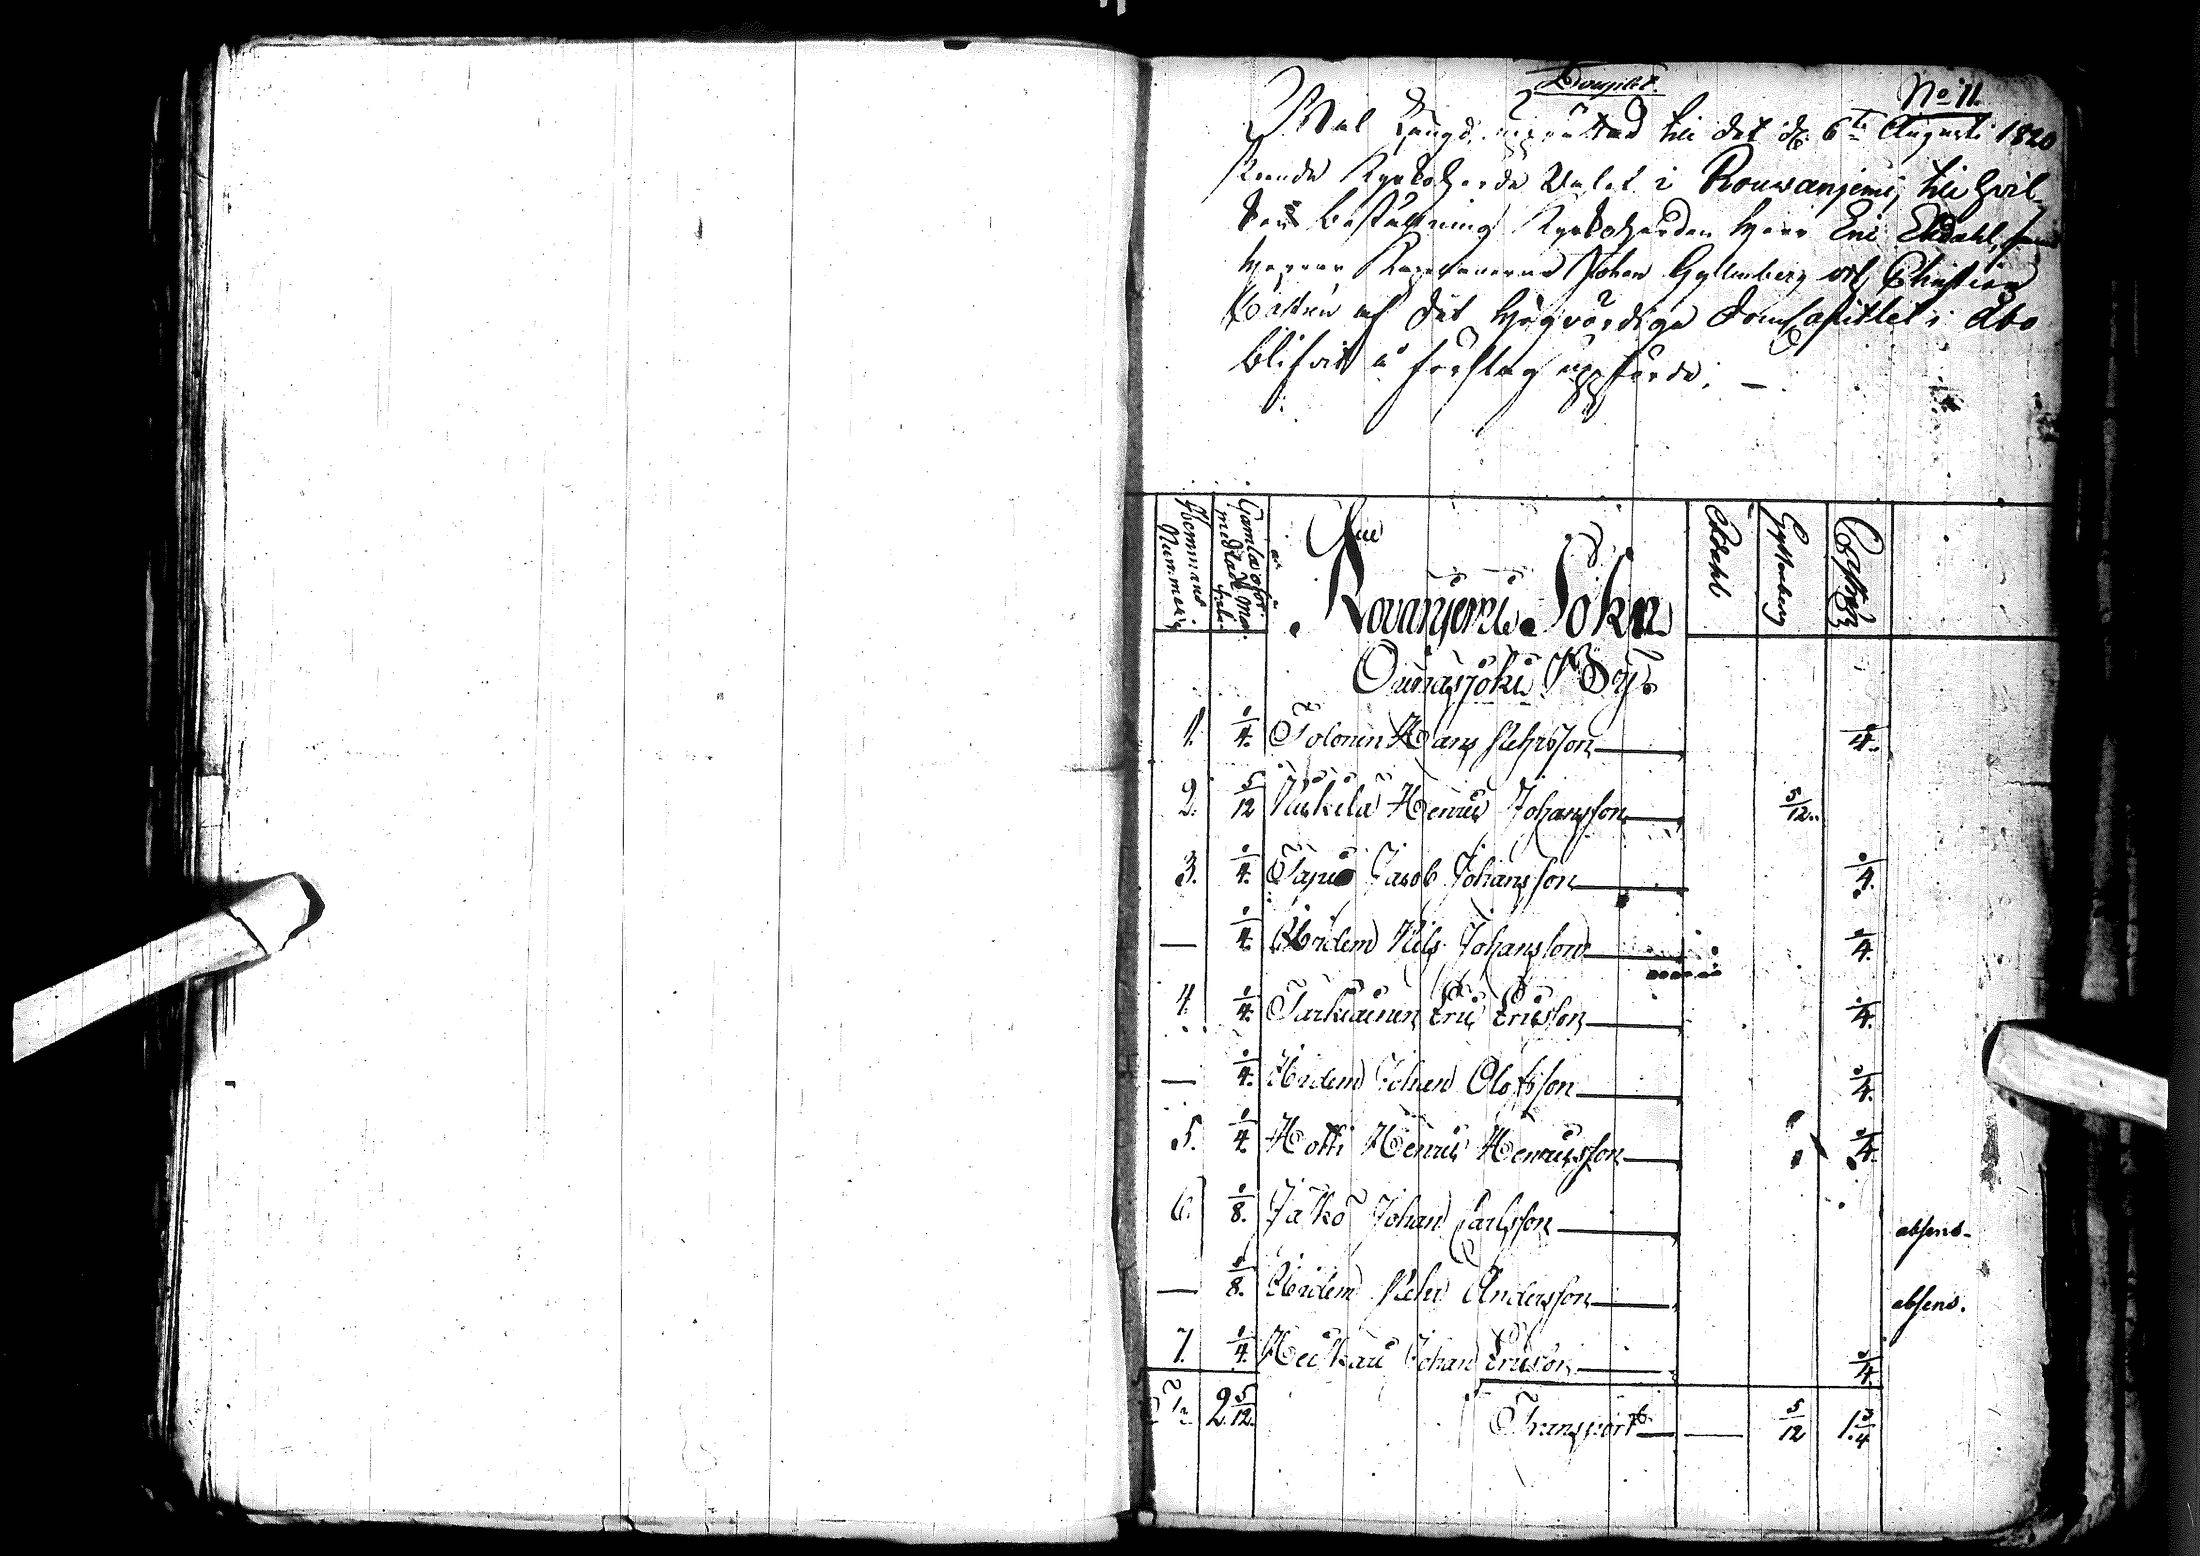 Douplet.
No 11.
Wal Längd, upprättad till det d: 6te Augusti 1820
skeende Kyrkoherde Valet i Rouwanjemi, till hvil-
beställning Kyrkoherden Herr Eric Ekdahl, samt
Herrar Johan Gyllenberg och Christian
Castrén af det Högvördiga DomCapitlet i Åbo
blifvit å förslag uppförde. —
Hemmans Nummer.
Gamla oför-
medlade
Rovanjemi Sokn
Ounasjoki By.
Ekdahl
Gyllenberg
Castrén
1. 1/4. Tolonen Hans Pehrsson 1/4.
2. 5/12 Niskala Henric Johansson 5/12.
3. 1/4. Tapio Jacob Johansson 1/4.
— 1/4. Ibidem Nils Johansson 1/4.
4. 1/4. Tarkiainen Eric Ericsson 1/4.
— 1/4. Ibidem Johan Olofsson 1/4.
5. 1/4. Hotti Henric Henricsson 1/4.
6. 1/8. Jäskö Johan Carlsson absens.
— 1/8. Ibidem Pehr Andersson absens.
7. 1/4. Johan Ericson 1/4.
2 5/12. Transport — 5/12 1 3/4